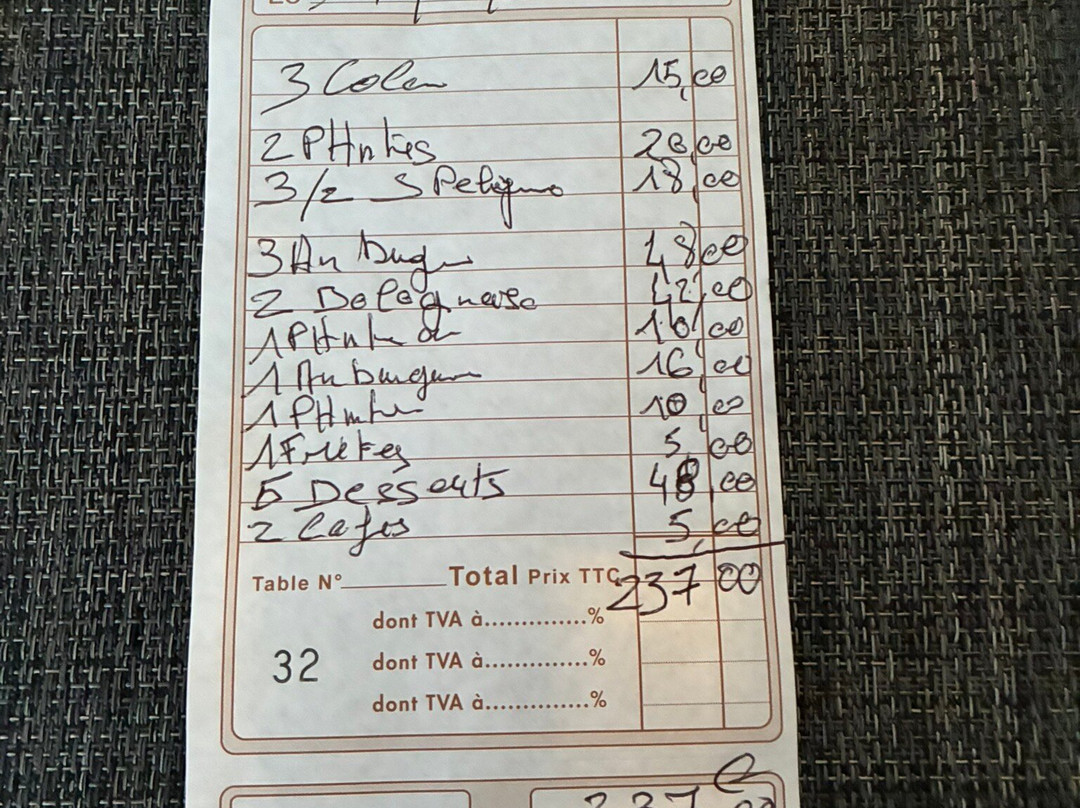 3 Coca 15,00
2 PHntes 20,00
3/2 S Pelegrino 18,00
3 Am burger 48,00
2 Bolognaise 42,00
1 10,00
1 Am burger 16,00
1 PHnte 10,00
1 Frites 5,00
5 Desserts 48,00
2 Cafés 5,00
Table N° Total Prix TTC 237 00
dont TVA à..............%
32 dont TVA à..............%
dont TVA à..............%
237 00